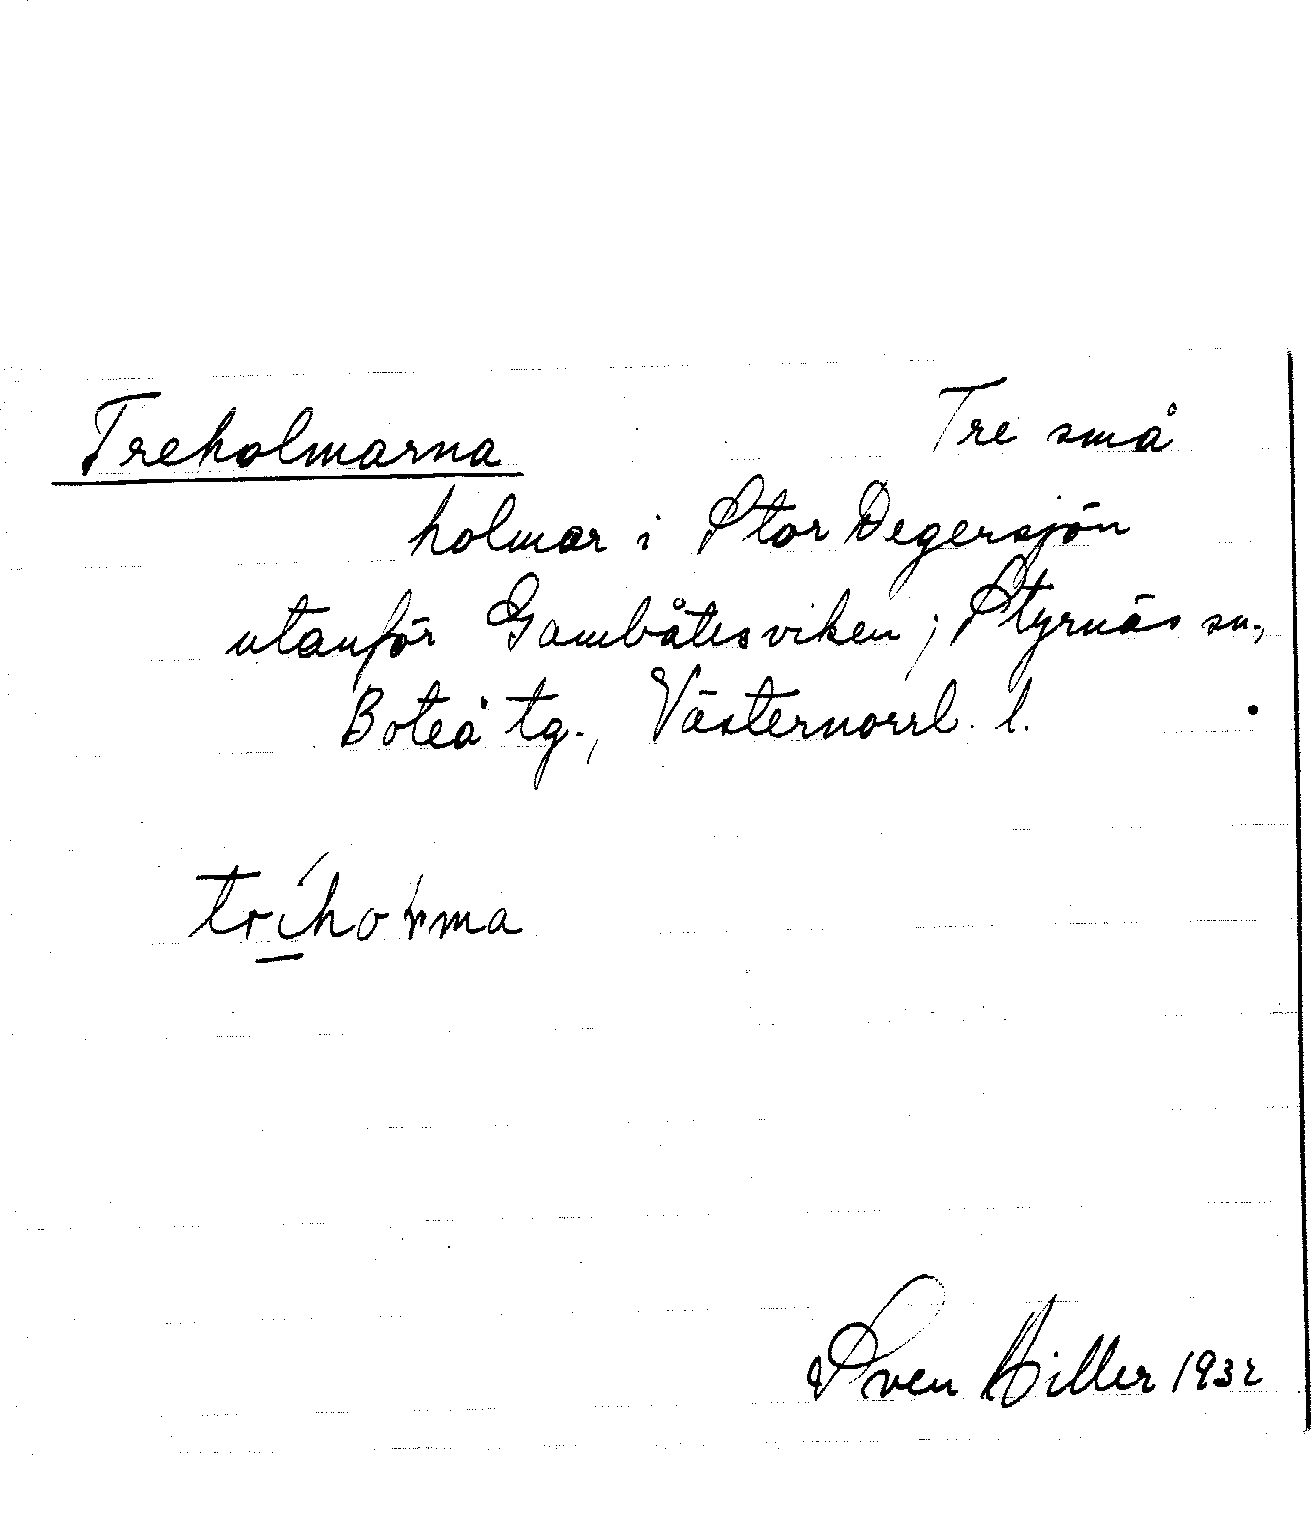 Treholmarna Tre små
holmar i Stor Degersjön
utanför Gambåtesviken; Styrnäs sn.,
Boteå tg., Västernorrl. l.
Sven Hiller 1932